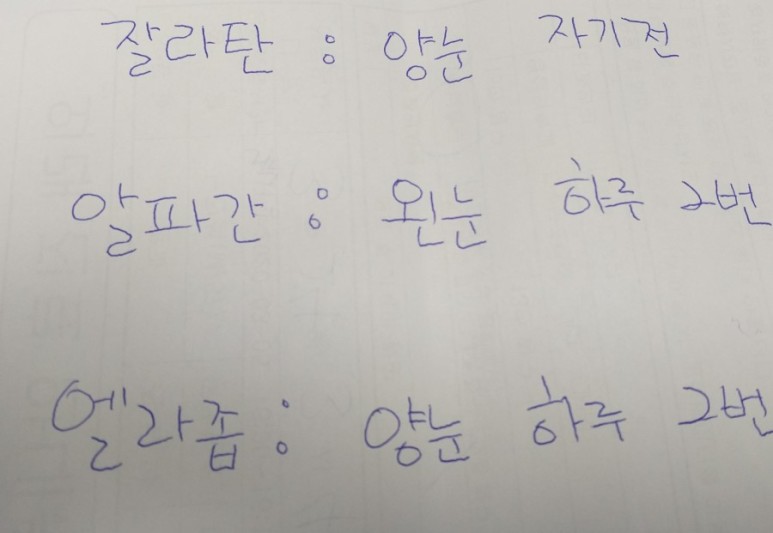 잘라탄 : 양눈 자기전
알파간 : 왼눈 하루 2번
엘라좁 : 양눈 하루 2번